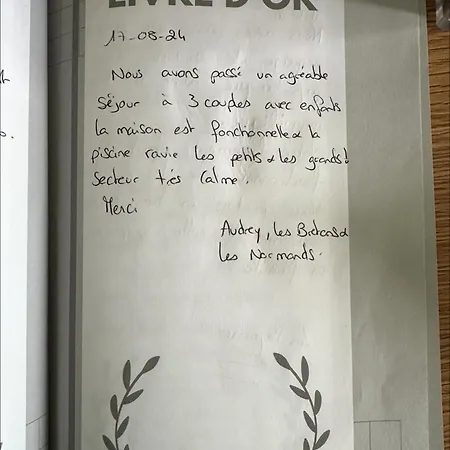 LIVRE D'OR
17-08-24
Nous avons passé un agréable
séjour à 3 couples avec enfants
la maison est fonctionnelle & la
piscine ravie les petits & les grands!
Secteur très calme.
Merci
Audrey, les Bretons &
les Normands.